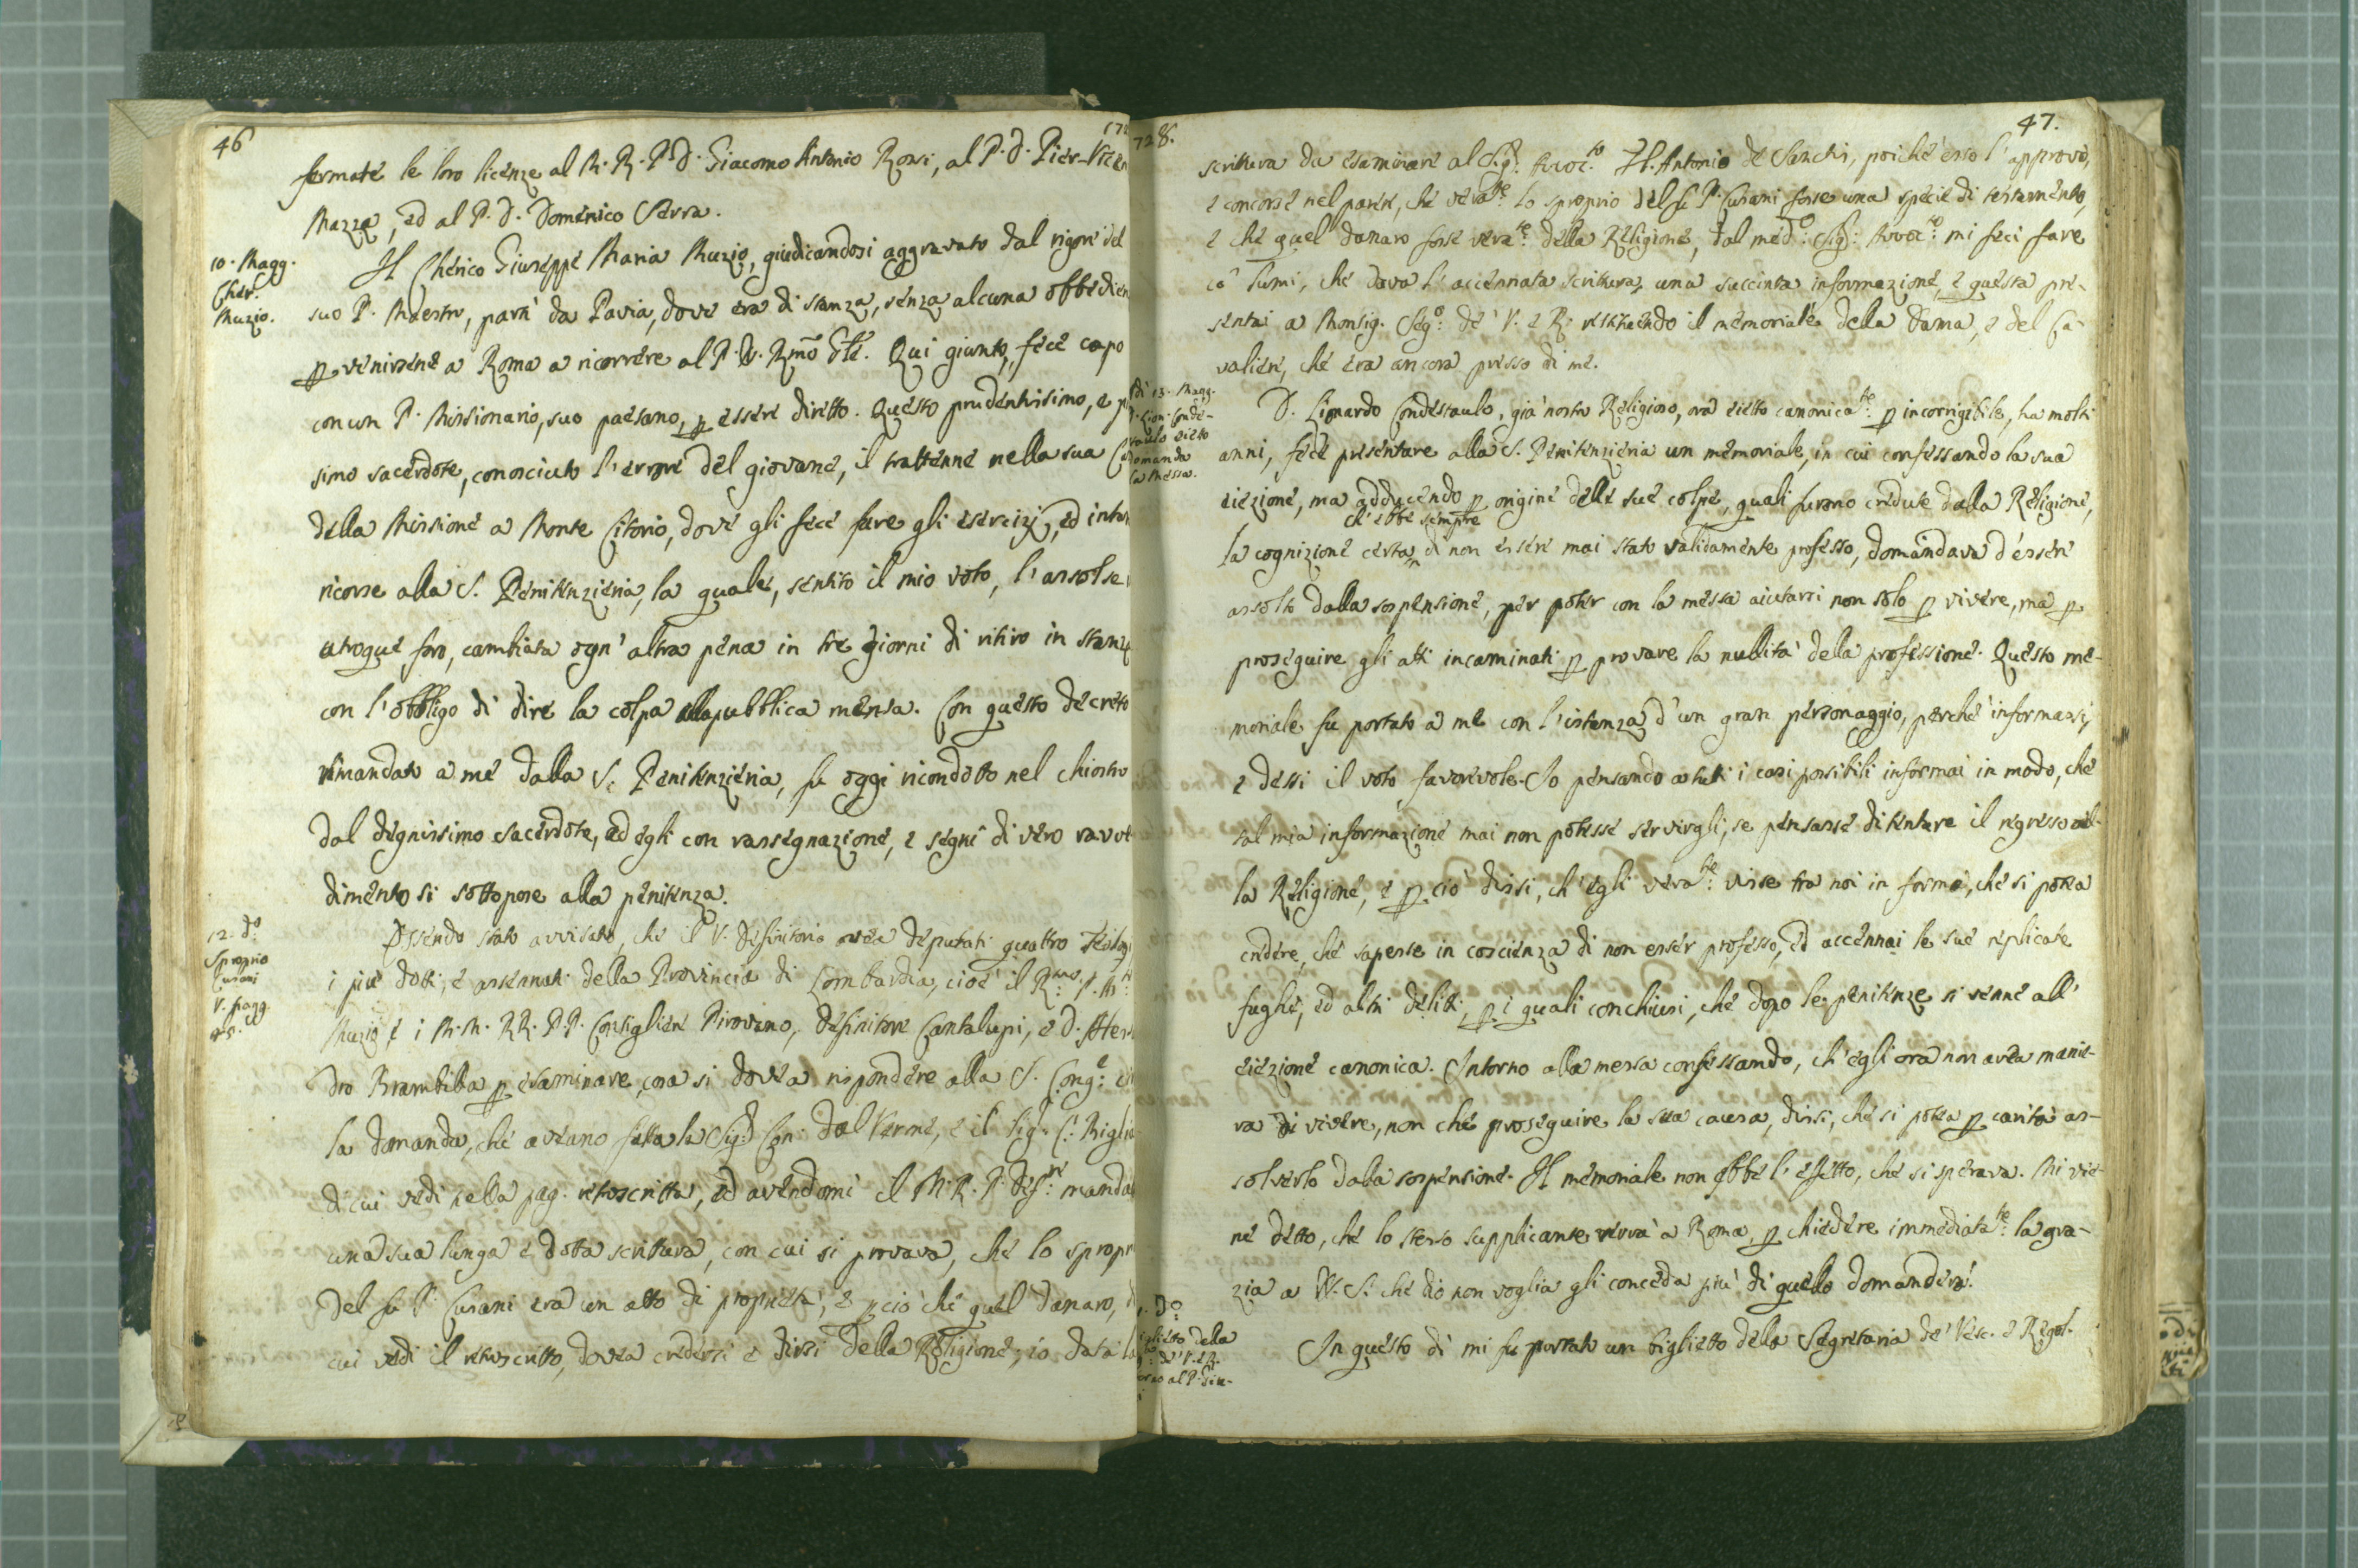 46
fermate le loro licenze al M. R. P. D. Giacomo Antonio Rossi, al P. D. Pier-Vicen
Mazza, ed al P. D. Domenico Serra.
10. Magg.
Cher.
Muzio.
Il Cherico Giuseppe Maria Muzio, giudicandosi aggravato dal rigore del
suo P. Maestro, partì da Pavia, dove era di stanza, senza alcuna obbedien
p venirsene a Roma a ricorrere al P. N. Rmo Gle. Qui giunto, fece capo
con un P. Missionario, suo paesano, p essere diretto. Questo prudentissimo, e p
simo sacerdote, conosciuto l'errore del giovane, il trattenne nella sua C
della Missione a Monte Citorio, dove gli fece fare gli esercizj, ed intan
ricorse alla S. Penitenzieria, la quale, sentito il mio voto, l'assolse
utroque foro, cambiata ogn'altra pena in tre giorni di ritiro in stanz
con l'obbligo di dire la colpa alla pubblica mensa. Con questo decreto
rimandato a me dalla S. Penitenzieria, fu oggi ricondotto nel chiostro
dal degnissimo sacerdote, ed egli con rassegnazione, e segni di vero ravve
dimento si sottopose alla penitenza.
12. do
Sproprio
Cusani
V. pagg.
45.
Essendo stato avvisato, che il V. Definitorio avea deputati quattro Teologi
i più dotti, e assennati della Provincia di Lombardia, cioè il Rmo P. M
Muzio e i M. M. RR. PP. Consigliere Pirovano, Definitore Cantalupi, e D. Ales
dro Brambilla p esaminare, cosa si dovea rispondere alla S. Conge
la domanda, che aveano fatta la Siga Con. Dal Verme, e il Sig. C. Biglia
di cui vedi nella pag. retroscritta, ed avendomi il M. R. P. Defre manda
una sua lunga e dotta scrittura, con cui si provava, che lo spropr
del fu P. Cusani era un atto di proprietà, e pciò che quel danaro, d
cui vedi il retroscritto, dovea credersi e dirsi della Religione, io data la
1728.
47.
scrittura da esaminare al Sigr. Avvoc.to Fl. Antonio de Sanchi, poichè esso l'approvò,
e concorse nel parere, che vera.te lo sproprio del fu P. Cusani fosse una specie di testamento,
e che quel danaro fosse vera.te della Religione, dal medo. Sigr. Avvoc.to mi feci fare
cō lumi, che dava l'accennata scrittura, una succinta informazione, e questa pre-
sentai a Monsig. Sego. de' V. e R. restituendo il memoriale della Dama, e del Ca-
valiere, che era ancora presso di me.
di 13. Magg.
D. Lion. Conde-
staulo eietto
domanda
la messa.
D. Lionardo Condestaulo, già nostro Religioso, ora eietto canonica.te p incorrigibile, ha molti
anni, fece presentare alla S. Penitenzieria un memoriale, in cui confessando la sua
eiezione, ma adducendo p origine delle sue colpe, quali furono credute dalla Religione,
ch'ebbe sempre
la cognizione certa, di non essere mai stato validamente professo, domandava d'essere
assolto dalla sospensione, per poter con la messa aiutarsi non solo p vivere, ma p
proseguire gli atti incaminati p provare la nullità della professione. Questo me-
moriale fu portato a me con l'istanza d'un gran personaggio, perchè informassi,
e dessi il voto favorevole. Io pensando a tutti i casi possibili informai in modo, che
tal mia informazione mai non potesse servirgli, se pensasse di tentare il regresso al-
la Religione, e p ciò dissi, ch'egli vera.te visse tra noi in forma, che si potea
credere, che sapesse in coscienza di non esser professo, ed accennai le sue replicate
fughe, ed altri delitti, p i quali conchiusi, che dopo le penitenze si venne all'
eiezione canonica. Intorno alla messa confessando, ch'egli ora non avea manie-
ra di vivere, non che proseguire la sua causa, dissi, che si potea p carità as-
solverlo dalla sospensione. Il memoriale non ebbe l'effetto, che si sperava. Mi vie-
ne detto, che lo stesso supplicante verrà a Roma, p chiedere immediata.te la gra-
zia a N. S. che dio non voglia gli conceda più di quello domanderà.
do
iglietto della
de' V. e R.
al P.
In questo dì mi fu portato un biglietto della Segretaria de' Vesc. e Regol.